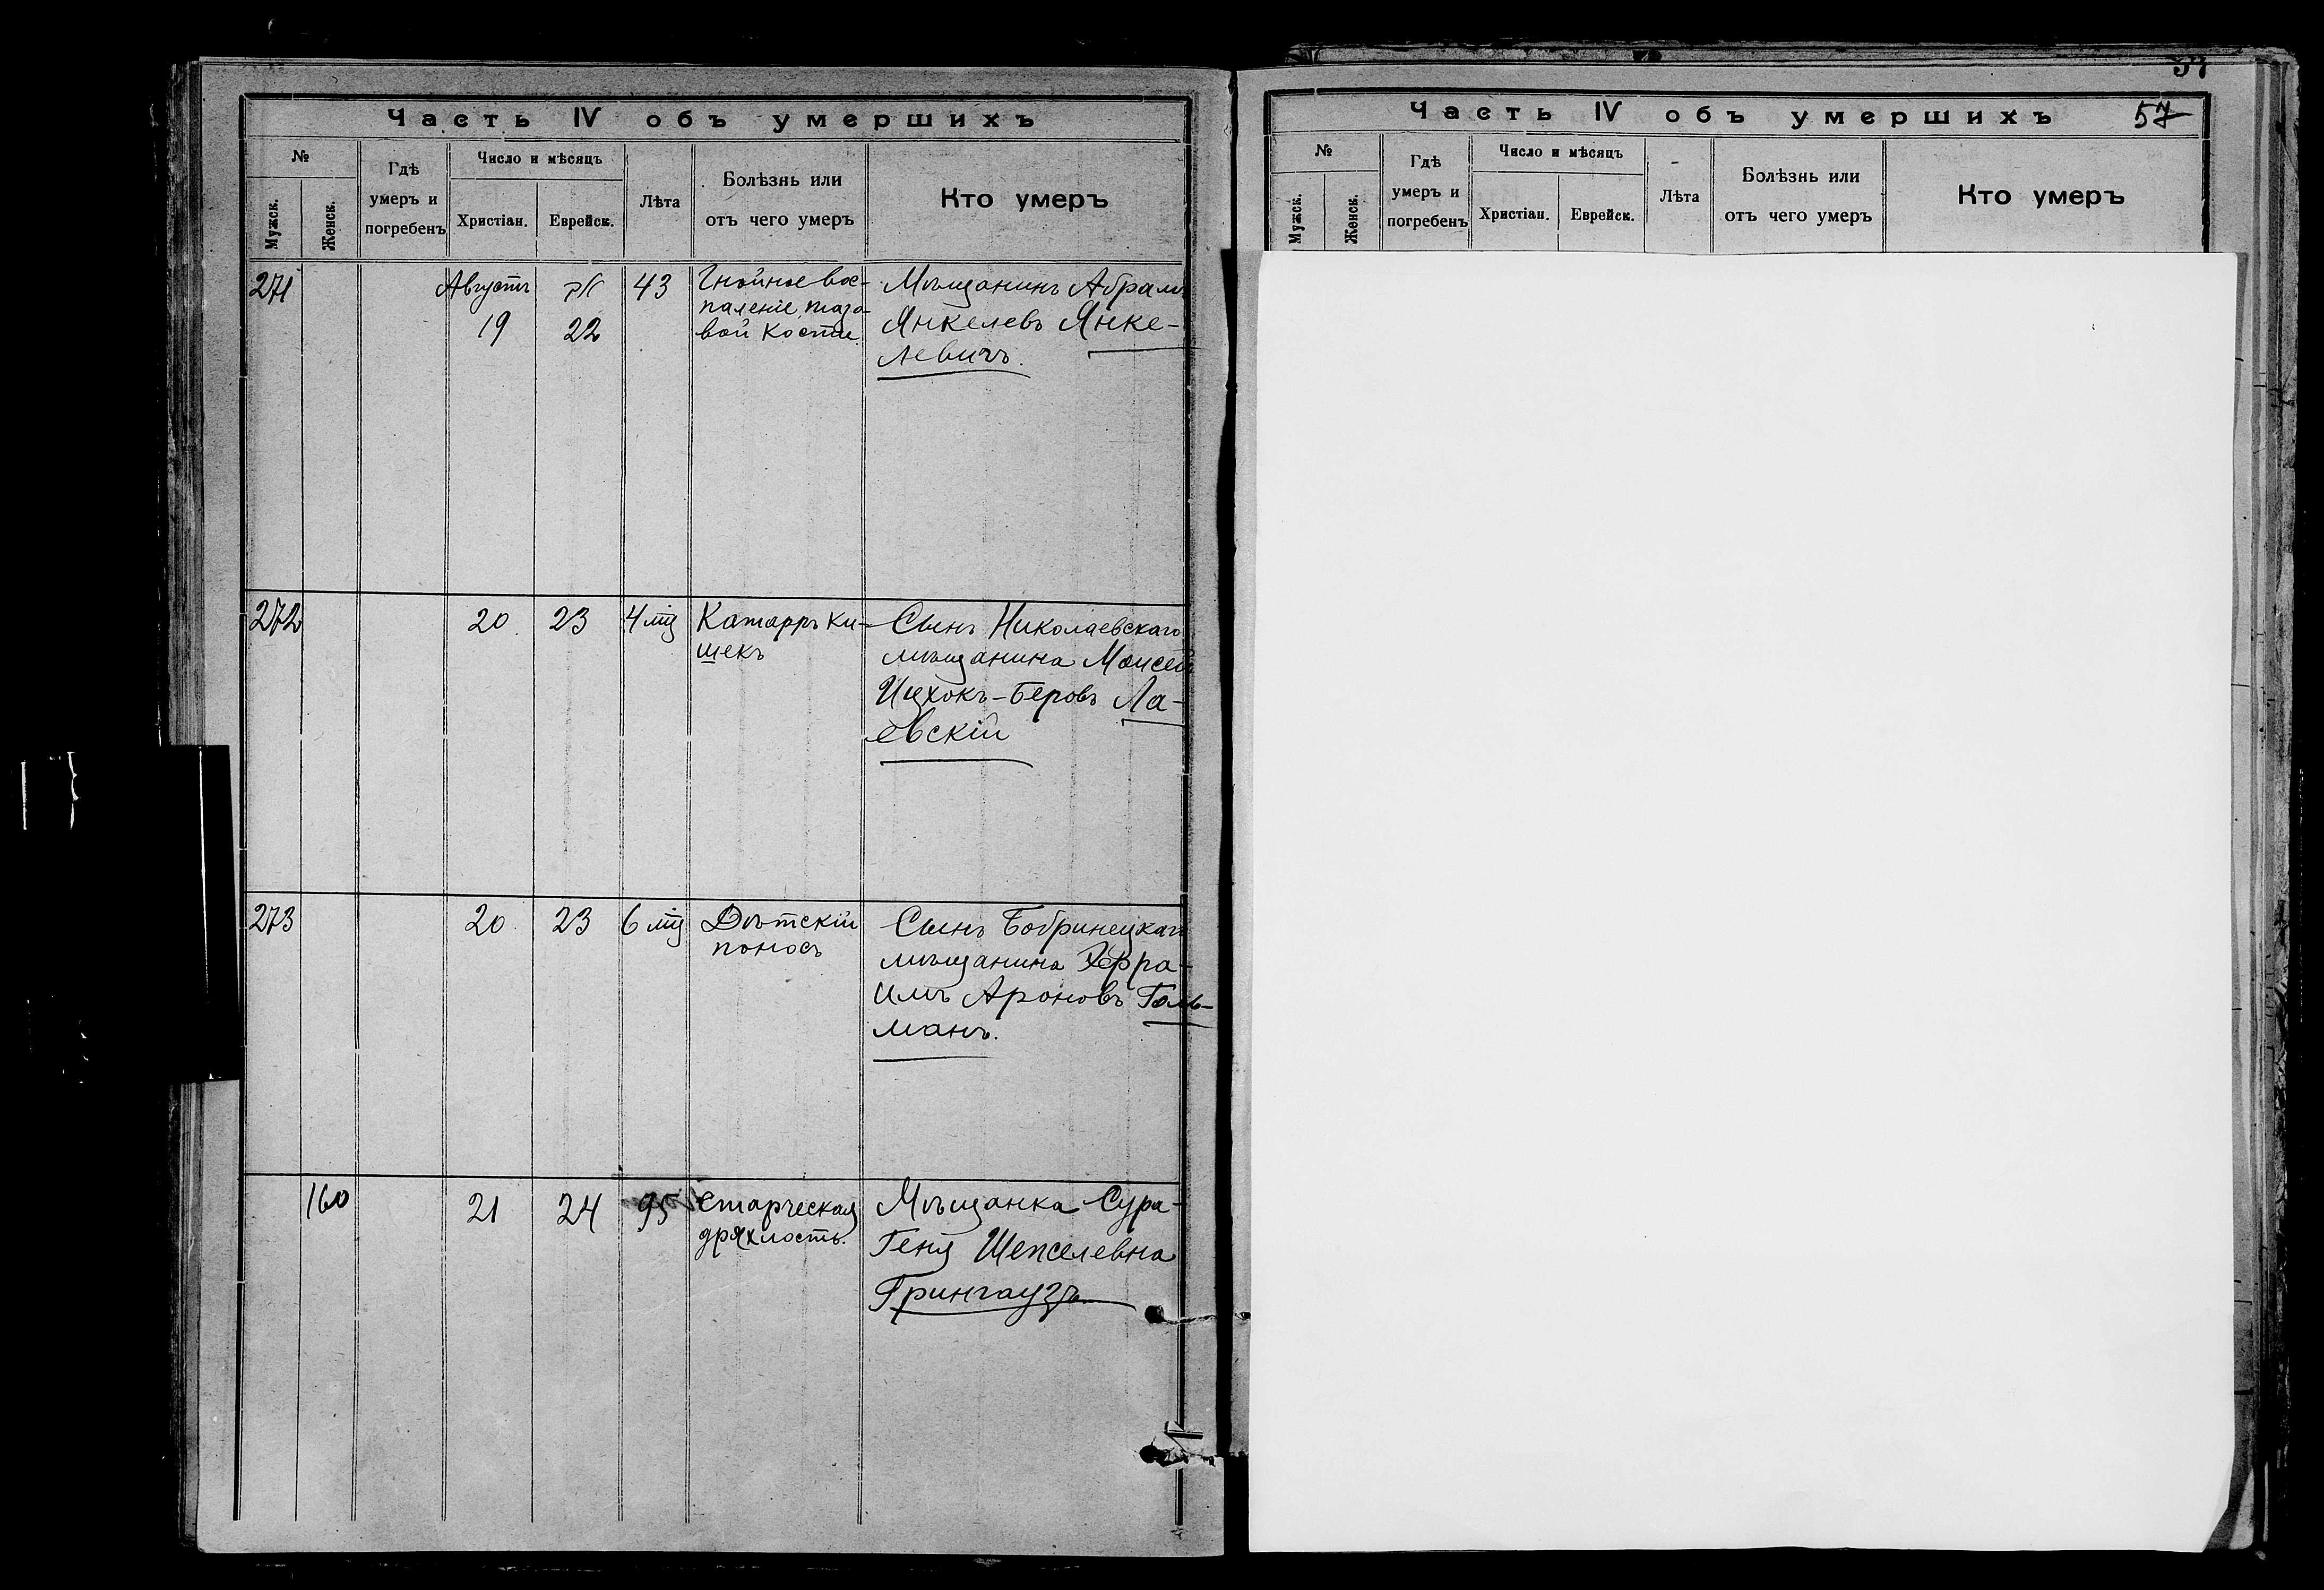 Часть IV объ умершихъ
№
Мужск.
Женск.
Гдѣ
умеръ и
погребенъ
Число и мѣсяцъ
Христіан.
Еврейск.
Лѣта
Болѣзнь или
отъ чего умеръ
Кто умеръ
271
Августъ
19
22
43
Гнойное вос-
паленіе тазо-
вой кости.
Мѣщанинъ Абрамъ
Янкелевъ Янке-
левичъ.
272
20
23
4 мц
Катарръ ки-
шекъ
Сынъ Николаевскаго
мѣщанина Моисей
Ицхокъ-Беровъ Ла-
евскій
273
20
23
6 мц
Дѣтскій
поносъ
Сынъ Бобринецкаго
мѣщанина Эфра-
имъ Ароновъ Голь-
манъ.
160
21
24
95
Старческая
дряхлость.
Мѣщанка Сура-
Геня Шепселевна
Грингаузъ
57
Часть IV объ умершихъ
57
№
Мужск.
Женск.
Гдѣ
умеръ и
погребенъ
Число и мѣсяцъ
Христіан.
Еврейск.
Лѣта
Болѣзнь или
отъ чего умеръ
Кто умеръ